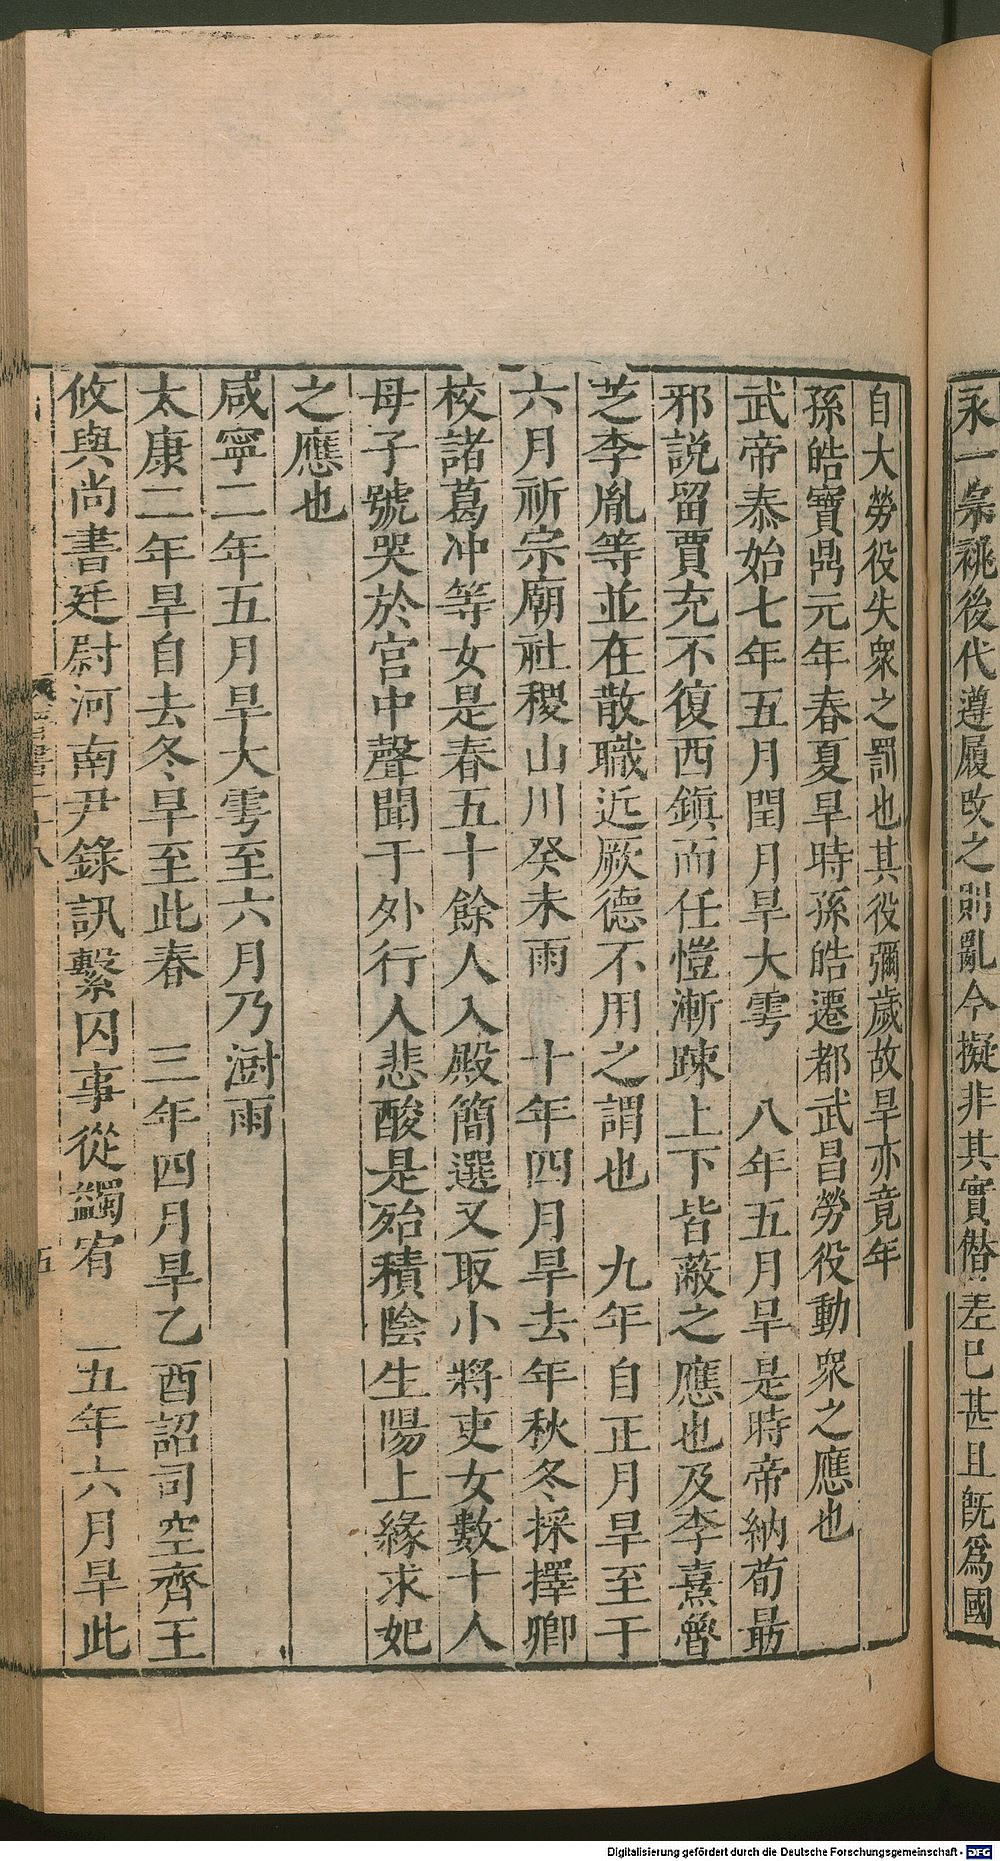 永一祟祧後代遵履改之則亂今擬非其實僣差已甚且旣爲國
自大勞役失衆之罰也其役彌歲故旱亦竟年
孫皓寶鼎元年春夏旱時孫皓遷都武昌勞役動衆之應也
武帝泰始七年五月閏月旱大雩　八年五月旱是時帝納荀勗
邪說留賈充不復西鎮而任愷漸踈上下皆蔽之應也及李熹魯
芝李胤等並在散職近厥德不用之謂也　九年自正月旱至于
六月祈宗廟社稷山川癸未雨　十年四月旱去年秋冬採擇卿
校諸葛冲等女是春五十餘人入殿簡選又取小將吏女數十人
母子號哭於宫中聲聞于外行人悲酸是殆積陰生陽上緣求妃
之應也
咸寧二年五月旱大雩至六月乃澍雨
太康二年旱自去冬旱至此春　三年四月旱乙酉詔司空齊王
攸與尚書廷尉河南尹錄訊繫囚事從蠲宥　五年六月旱此
五
Digitalisierung gefördert durch die Deutsche Forschungsgemeinschaft - DFG